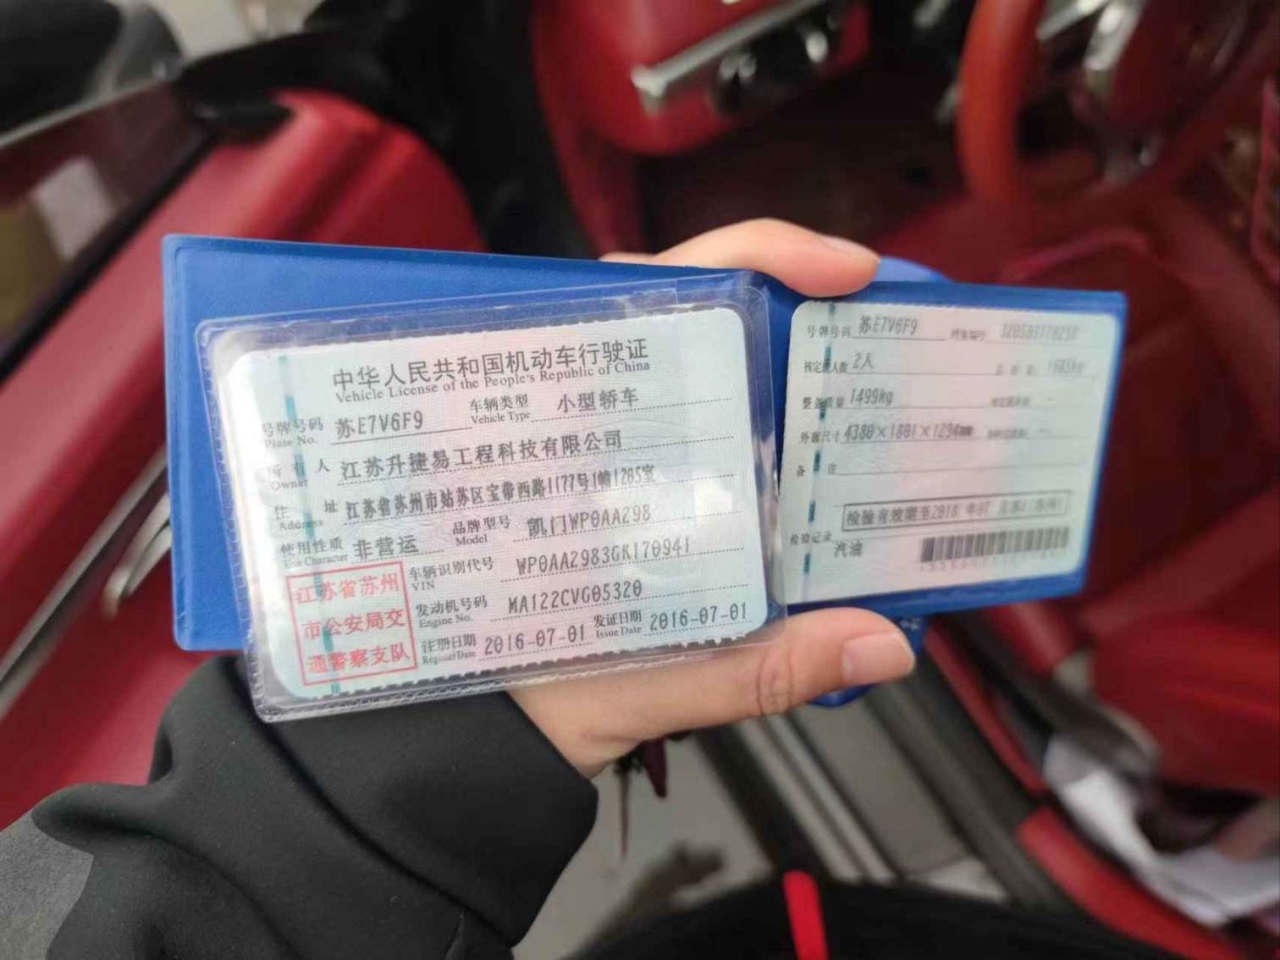 中华人民共和国机动车行驶证
Vehicle License of the People's Republic of China
号牌号码 Plate No. 苏E7V6F9 车辆类型 Vehicle Type 小型轿车
所有人 Owner 江苏升捷易工程科技有限公司
住址 Address 江苏省苏州市姑苏区宝带西路1177号1幢1205室
使用性质 Use Character 非营运 品牌型号 Model 凯门WP0AA298
车辆识别代号 VIN WP0AA2983GK170941
发动机号码 Engine No. MA122CVG05320
注册日期 Register Date 2016-07-01 发证日期 Issue Date 2016-07-01
江苏省苏州
市公安局交
通警察支队
号牌号码 苏E7V6F9 档案编号
核定载人数 2人 总质量
整备质量 1499kg
外廓尺寸 4380×1801×1294mm
备注
检验有效期至2018年07
检验记录
汽油